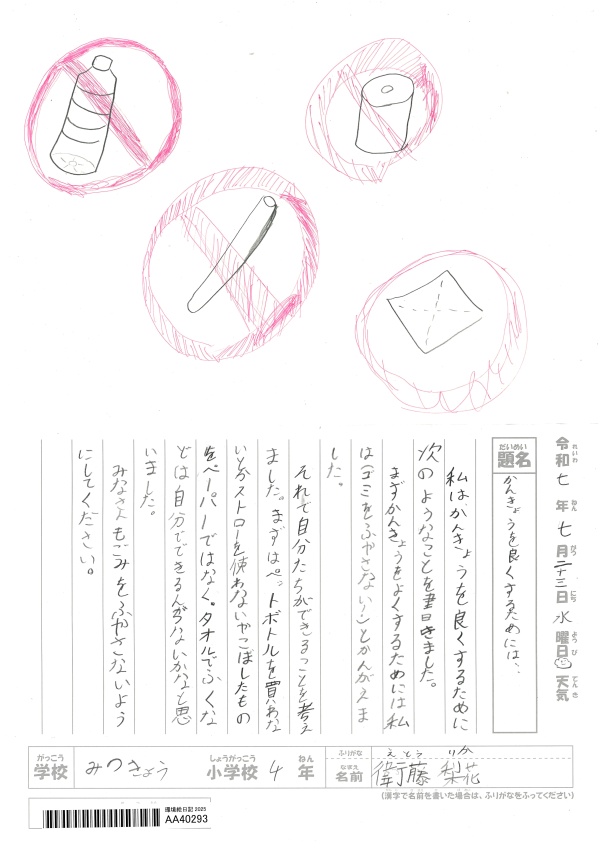 令和七年七月二十三日水曜日天気
れいわ ねん がつ にち ようび てんき
だいめい
題名
かんきょうを良くするためには、、
私はかんきょうを良くするために
次のようなことを書きました。
まずかんきょうをよくするためには私
は「ゴミをふやさない！」とかんがえま
した。
それで自分たちができることを考え
ました。まずはペットボトルを買わな
いとかストローを使わないやこぼしたもの
をペーパーではなく。タオルでふくな
どは自分でできるんぢゃないかなと思
いました。
みなさんもごみをふやさないよう
にしてください。
がっこう しょうがっこう ねん
学校 みつきょう 小学校 4 年
ふりがな えとう りか
なまえ
名前 衛藤 梨花
(漢字で名前を書いた場合は、ふりがなをふってください)
環境絵日記 2025
AA40293